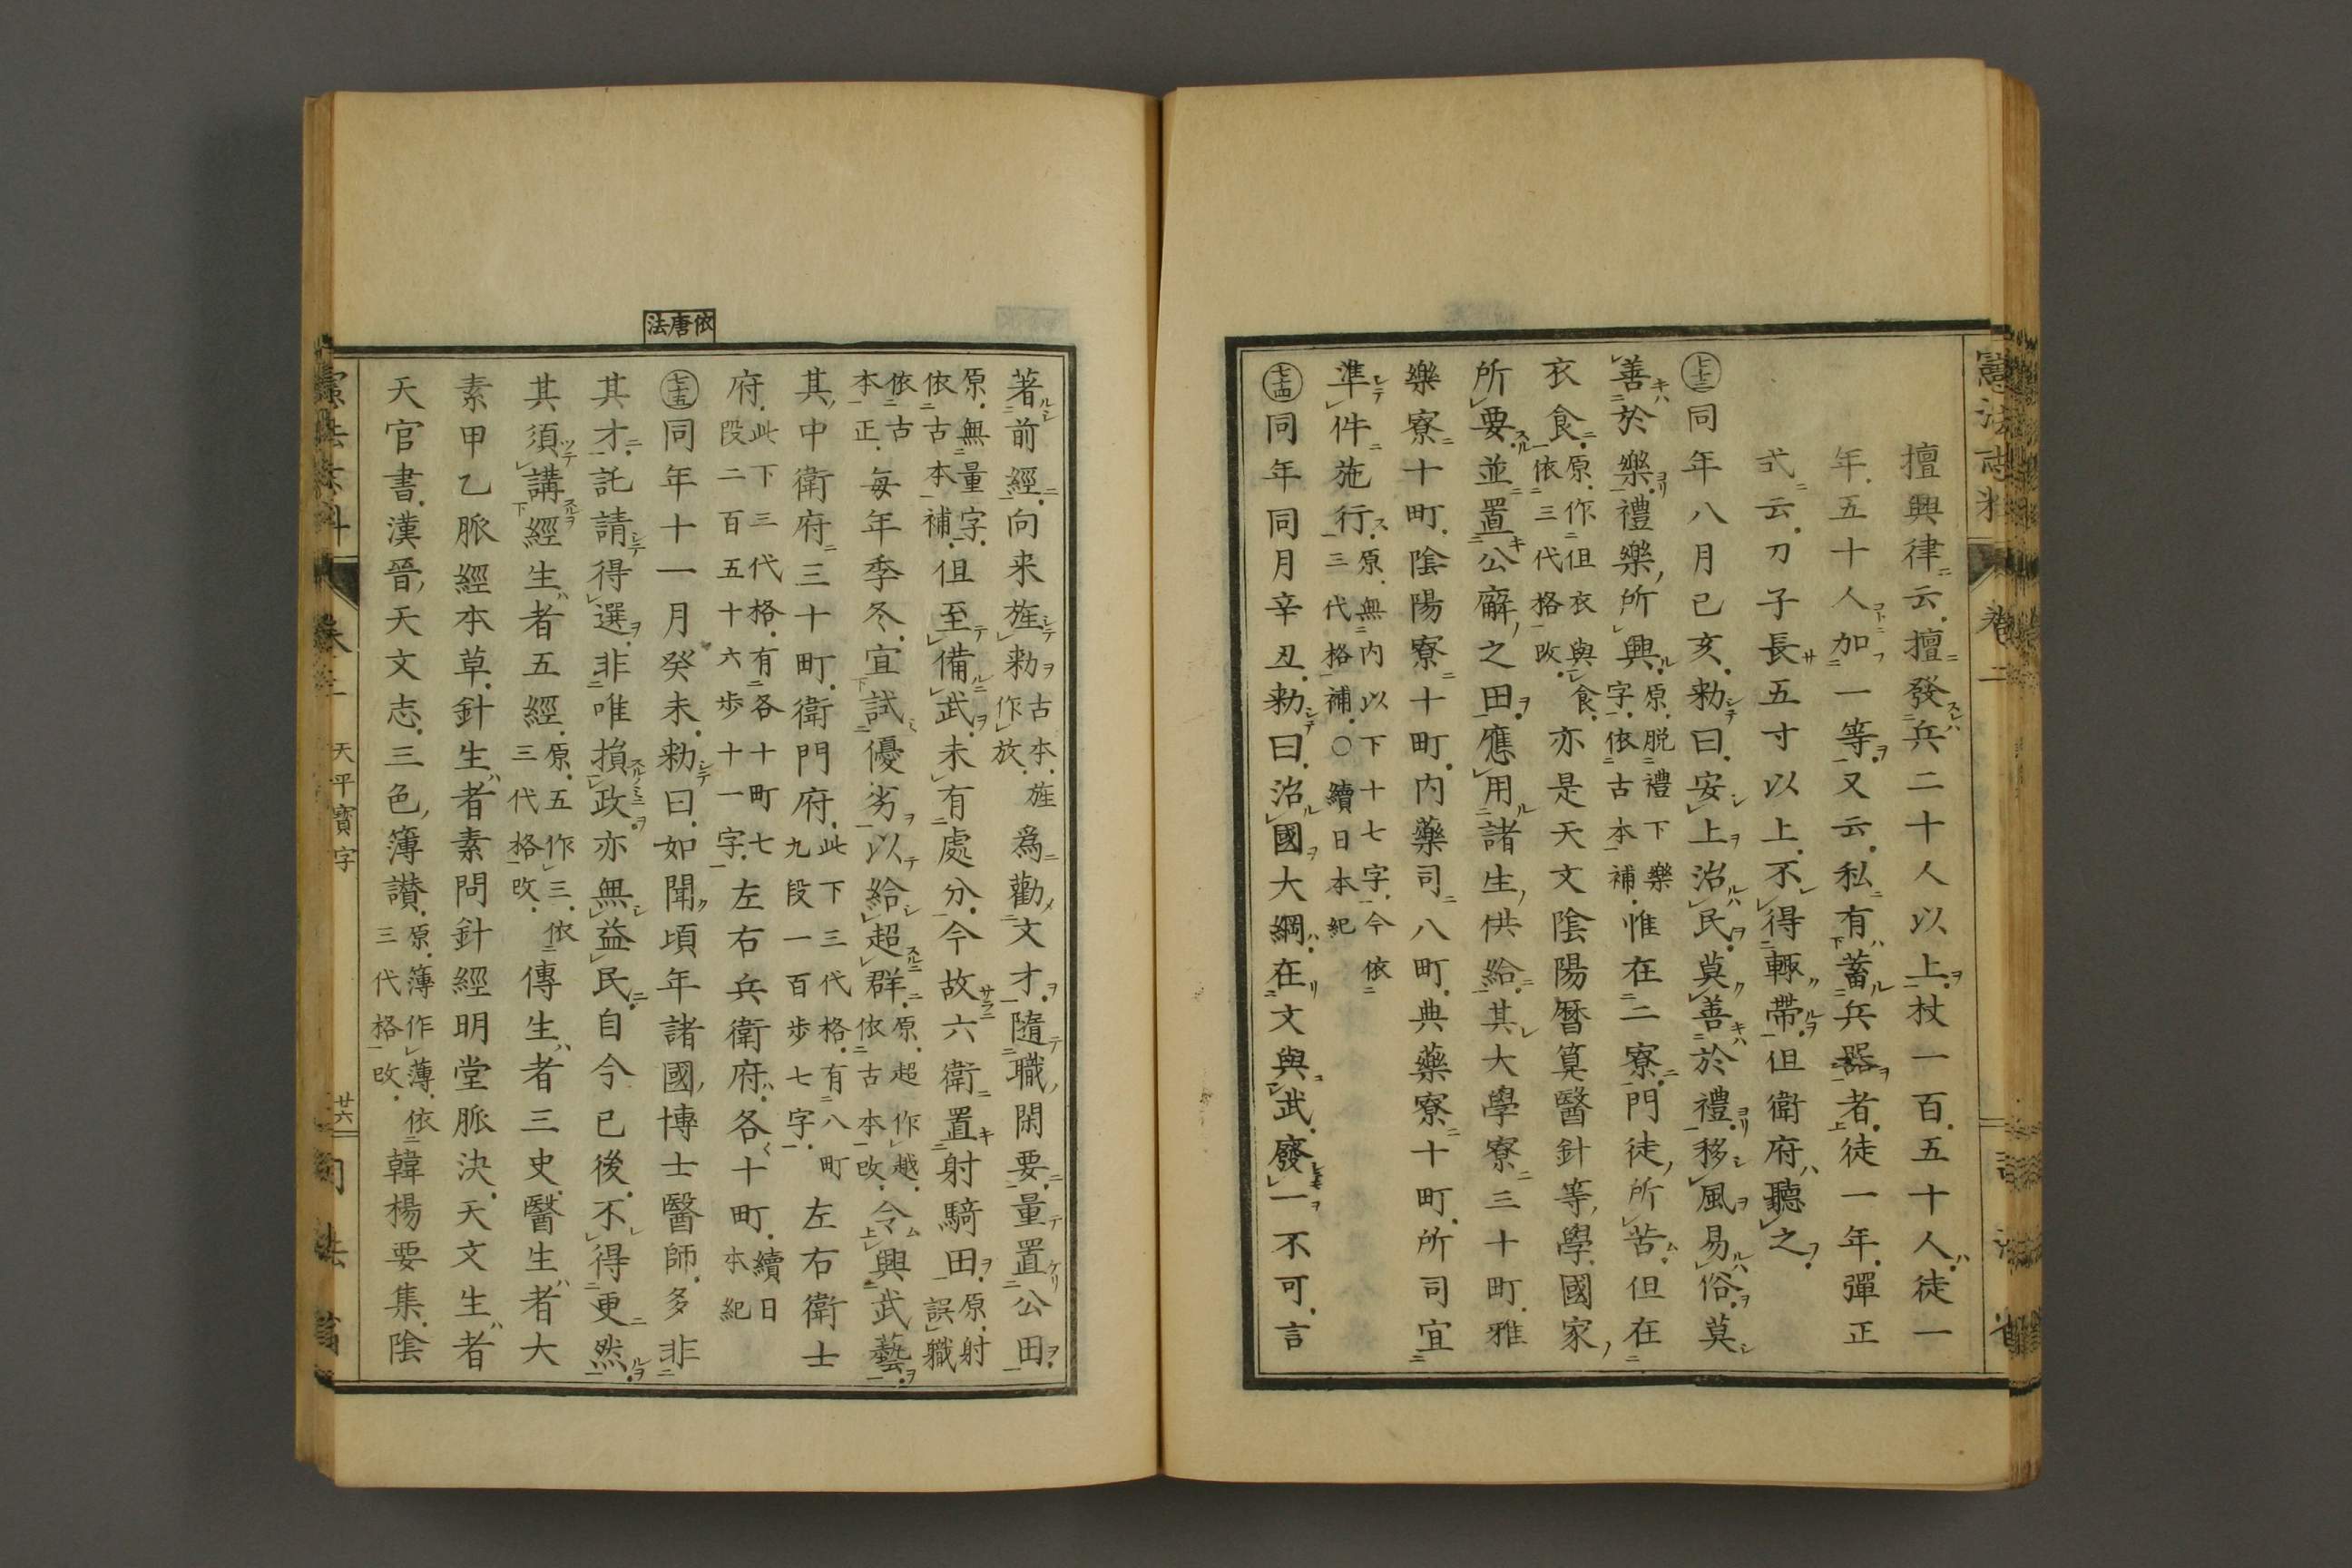 擅興律云擅發兵二十人以上杖一百五十人徒一
年五十人加一等又云私有蓄兵器者徒一年彈正
式云刀子長五寸以上不得輙帶但衛府聽之
七十三 同年八月己亥勅曰安上治民莫善於禮移風易俗莫
善於樂禮樂所興原脱禮下樂字依古本補惟在二寮門徒所苦但在
衣食原作但衣與食依三代格改亦是天文陰陽曆算醫針等學國家
所要並置公廨之田應用諸生供給其大學寮三十町雅
樂寮十町陰陽寮十町内藥司八町典藥寮十町所司宜
準件施行原無内以下十七字今依三代格補〇續日本紀
七十四 同年同月辛丑勅曰治國大綱在文與武廢一不可言
憲法志料 卷二
依唐法
著前經向来旌勅古本旌作放爲勸文才隨職閑要量置公田
原無量字依古本補但至備武未有處分今故六衛置射騎田原射誤職
依古本正每年季冬宜試優劣以給超群原超作越依古本改令興武藝
其中衛府三十町衛門府此下三代格有八町九段一百歩七字左右衛士
府此下三代格有各十町七段二百五十六歩十一字左右兵衛府各十町續日本紀
七十五 同年十一月癸未勅曰如聞頃年諸國博士醫師多非
其才託請得選非唯損政亦無益民自今已後不得更然
其須講經生者五經原五作三依三代格改傳生者三史醫生者大
素甲乙脈經本草針生者素問針經明堂脈決天文生者
天官書漢晉天文志三色簿讃原簿作薄依三代格改韓楊要集陰
天平寶字 廿六